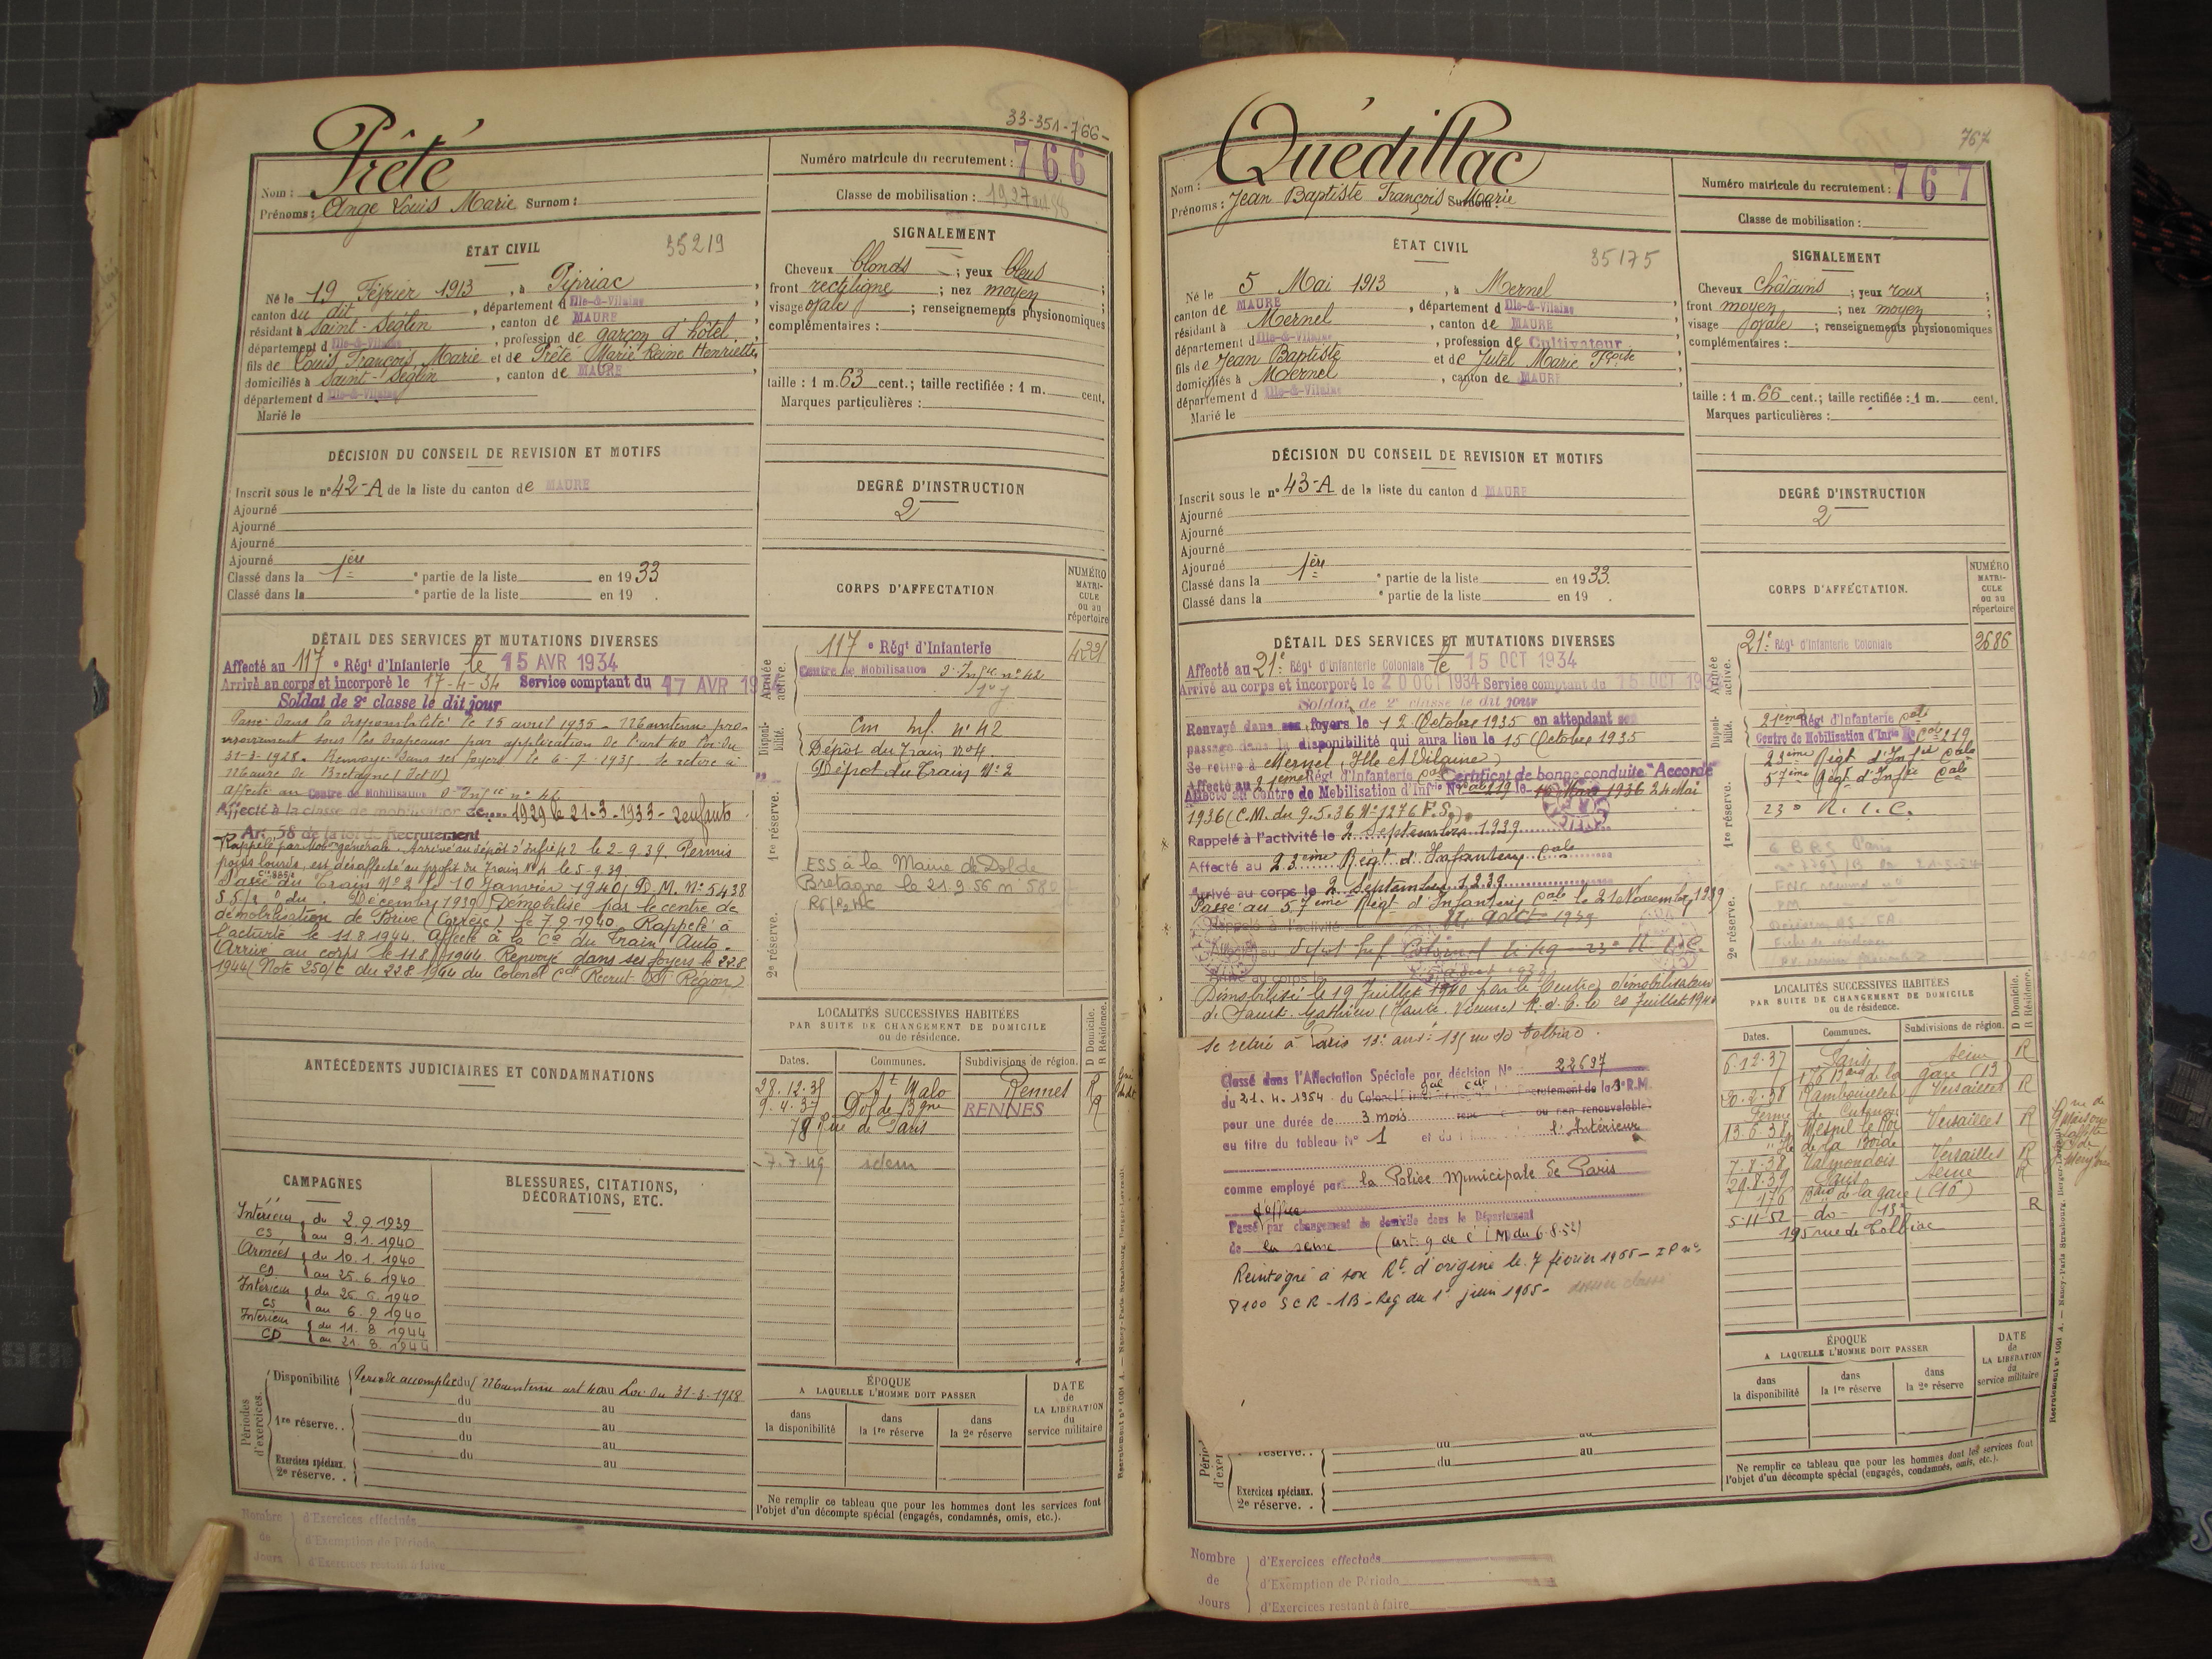 33-351-766-
Prêté
Nom :
Prénoms : Ange Louis Marie Surnom :
Numéro matricule du recrutement : 766
Classe de mobilisation : 1927
ÉTAT CIVIL
35219
Né le 19 Février 1913, à Pipriac,
canton du dit, département d Ille-&-Vilaine
résidant à Saint-Séglin, canton de MAURE,
département d Ille-&-Vilaine, profession de garçon d'hôtel.
fils de Louis François Marie et de Prêté Marie Reine Henriette,
domiciliés à Saint-Séglin, canton de MAURE,
département d Ille-&-Vilaine
Marié le
SIGNALEMENT
Cheveux blonds ; yeux bleus
front rectiligne ; nez moyen ;
visage ovale ; renseignements physionomiques
complémentaires :
taille : 1 m. 63 cent.; taille rectifiée : 1 m. cent.
Marques particulières :
DÉCISION DU CONSEIL DE REVISION ET MOTIFS
Inscrit sous le n° 42-A de la liste du canton de MAURE
Ajourné
Ajourné
Ajourné
Ajourné
Classé dans la 1ère partie de la liste en 1933
Classé dans la partie de la liste en 19 .
DEGRÉ D'INSTRUCTION
2
DÉTAIL DES SERVICES ET MUTATIONS DIVERSES
Affecté au 117e Régt d'Infanterie le 15 AVR 1934
Arrivé au corps et incorporé le 17-4-34 Service comptant du 17 AVR 19
Soldat de 2e classe le dit jour
Passé dans la disponibilité le 15 avril 1935 - Maintenu pro-
visoirement sous les drapeaux par application de l'art 40 Loi du
31-3-1928. Renvoyé dans ses foyers le 6-7-1935 se retire à
Maure de Bretagne (I et V)
Affecté au Centre de Mobilisation
Affecté à la classe de mobilisation de 1929 le 21-3-1933 - 2 enfants
Art. 58 de la loi de Recrutement
Rappelé par Mobon générale. Arrivé au dépôt d'Infie 42 le 2-9-39. Permis
poids lourds, est désaffecté au profit du Train N°4 le 5-9-39
Passé au Train N°2 le 10 Janvier 1940 (D.M. N° 5438
du Décembre 1939) Démobilisé par le centre de
démobilisation de Brive (Corrèze) le 7.9.1940. Rappelé à
l'activité le 11.8.1944. Affecté à la Cie du Train Auto.
Arrivé au corps le 11.8.1944 Renvoyé dans ses foyers le 22.8
1944 (Note 250/C du 22.8.1944 du Colonel Cdt Recrut Région)
CORPS D'AFFECTATION
NUMÉRO
MATRI-
CULE
ou au
répertoire
Armée active.
117e Régt d'Infanterie
4221
Centre de Mobilisation d'Infie n° 42
Disponibilité.
Cm Inf. n° 42
Dépôt du Train N°4.
Dépôt du Train N°2
1re réserve.
ESS à la Mairie de Dol de
Bretagne le 21.9.56 n° 580
2e réserve.
LOCALITÉS SUCCESSIVES HABITÉES
PAR SUITE DE CHANGEMENT DE DOMICILE
ou de résidence.
D Domicile.
R Résidence.
Dates. Communes. Subdivisions de région.
28.12.35 St Malo Rennes R
9.4.37 Dol de Bgne RENNES R
78 Rue de Paris
-7.7.49 idem
ANTÉCÉDENTS JUDICIAIRES ET CONDAMNATIONS
CAMPAGNES
Intérieur du 2.9.1939
CS au 9.1.1940
Armées du 10.1.1940
CD au 25.6.1940
Intérieur du 26.6.1940
CS au 6.9.1940
Intérieur du 11.8 1944
CD au 21.8.1944
BLESSURES, CITATIONS,
DÉCORATIONS, ETC.
Périodes d'exercices.
Disponibilité Période accomplie du (Maintenu art 40 au Loi du 31-3-1928
du au
1re réserve.. du au
du au
Exercices spéciaux. du au
2e réserve. .
ÉPOQUE
A LAQUELLE L'HOMME DOIT PASSER
dans la disponibilité
dans la 1re réserve
dans la 2e réserve
DATE
de
LA LIBÉRATION
du
service militaire
Ne remplir ce tableau que pour les hommes dont les services font
l'objet d'un décompte spécial (engagés, condamnés, omis, etc.).
Nombre de Jours
d'Exercices effectués
d'Exemption de Période
d'Exercices restant à faire
Recrutement n° 1091 A. — Nancy-Paris-Strasbourg, Berger-Levrault.
767
Quédillac
Nom :
Prénoms : Jean Baptiste François Marie Surnom :
Numéro matricule du recrutement : 767
Classe de mobilisation :
ÉTAT CIVIL
35175
Né le 5 Mai 1913, à Mernel
canton de MAURE, département d Ille-&-Vilaine
résidant à Mernel, canton de MAURE
département d Ille-&-Vilaine, profession de Cultivateur
fils de Jean Baptiste et de Jutel Marie Fçoise
domiciliés à Mernel, canton de MAURE,
département d Ille-&-Vilaine
Marié le
SIGNALEMENT
Cheveux châtains ; yeux roux ;
front moyen ; nez moyen ;
visage ovale ; renseignements physionomiques
complémentaires :
taille : 1 m. 66 cent.; taille rectifiée : 1 m. cent.
Marques particulières :
DÉCISION DU CONSEIL DE REVISION ET MOTIFS
Inscrit sous le n° 43-A de la liste du canton d MAURE
Ajourné
Ajourné
Ajourné
Ajourné
Classé dans la 1ère partie de la liste en 1933.
Classé dans la partie de la liste en 19 .
DEGRÉ D'INSTRUCTION
2
DÉTAIL DES SERVICES ET MUTATIONS DIVERSES
Affecté au 21e Régt d'Infanterie Coloniale le 15 OCT 1934
Arrivé au corps et incorporé le 20 OCT 1934 Service comptant du 15 OCT 193
Soldat de 2e classe le dit jour
Renvoyé dans ses foyers le 12 Octobre 1935 en attendant son
passage dans la disponibilité qui aura lieu le 15 Octobre 1935
Se retire à Mernel (Ille et Vilaine)
Affecté au 21ème Régt d'Infanterie Cale Certificat de bonne conduite "Accordé"
Affecté au Centre de Mobilisation d'Infie N° Cal 219 le 1936 24 Mai
1936 (C.M. du 9.5.36 N° 1276 F.S.)
Rappelé à l'activité le 2 Septembre 1939
Affecté au 23ème Régt d'Infanterie Cale
Arrivé au corps le 2 Septembre 1939
Passé au 57ème Régt d'Infanterie Cale le 21 Novembre 1939
Rappelé à l'activité 1939
Arrivé au corps le
Démobilisé le 19 Juillet 1940 par le Centre démobilisateur
de Saint-Mathieu (Haute-Vienne) R.d.C. le 20 Juillet 1940
Se retire à Paris 13e arrt 195 rue de Tolbiac.
Classé dans l'Affectation Spéciale par décision N° 22697
du 21.4.1954 du Colonel Recrutement de la R.M.
pour une durée de 3 mois ou non renouvelable.
au titre du tableau N° 1 et du l'Intérieur
comme employé par la Police Municipale de Paris
d'office
Passé par changement de domicile dans le Département
de la Seine (art. 9 de l'IM du 6.8.52)
Réintégré à son Rt d'origine le 7 février 1955 - IP n°
8100 SCR-1B-Reg du 1er juin 1955 - dossier classé
CORPS D'AFFECTATION.
NUMÉRO
MATRI-
CULE
ou au
répertoire
Armée active.
21e Régt d'Infanterie Coloniale
2686
Disponibilité.
21ème Régt d'Infanterie Cale
Centre de Mobilisation d'Infie N° Cal 219
23ème Régt d'Infie Cale
57ème Régt d'Infie Cale
1re réserve.
23e R.I.C.
2e réserve.
LOCALITÉS SUCCESSIVES HABITÉES
PAR SUITE DE CHANGEMENT DE DOMICILE
ou de résidence.
D Domicile.
R Résidence.
Dates. Communes. Subdivisions de région.
6.12.37 Paris Seine R
176 Bard de la gare (13)
20.2.38 Rambouillet Versailles R
Ferme de
13.6.38 Mesnil le Roi Versailles R
de la Borde
7.7.38 Valmondois Versailles R
29.8.39 Paris Seine R
176 Bard de la gare
5-11-52 - do - R
195 rue de Tolbiac
Périodes d'exercices
réserve.. du au
du au
Exercices spéciaux.
2e réserve. .
ÉPOQUE
A LAQUELLE L'HOMME DOIT PASSER
dans la disponibilité
dans la 1re réserve
dans la 2e réserve
DATE
de
LA LIBÉRATION
du
service militaire
Ne remplir ce tableau que pour les hommes dont les services font
l'objet d'un décompte spécial (engagés, condamnés, omis, etc.).
Nombre de Jours
d'Exercices effectués
d'Exemption de Période
d'Exercices restant à faire
Recrutement n° 1091 A. — Nancy-Paris-Strasbourg, Berger-Levrault.